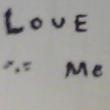 LOVE
Me